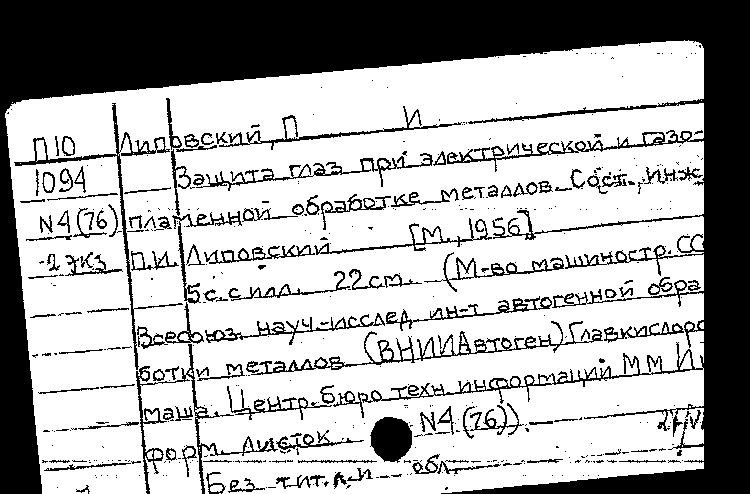 П10 Липовский, П И
1094 Защита глаз при электрической и газо-
N4(76) пламенной обработке металлов. Сост. инж.
-2 экз П.И. Липовский [М., 1956]
5с. с илл. 22 см. (М-во машиностр. СС
Всесоюз. науч.-исслед. ин-т автогенной обра
ботки металлов (ВНИИАвтоген) Главкислоро
маша. Центр. бюро техн. информаций ММ Ин
форм. листок. N4 (76)).
Без тит. л. и обл.